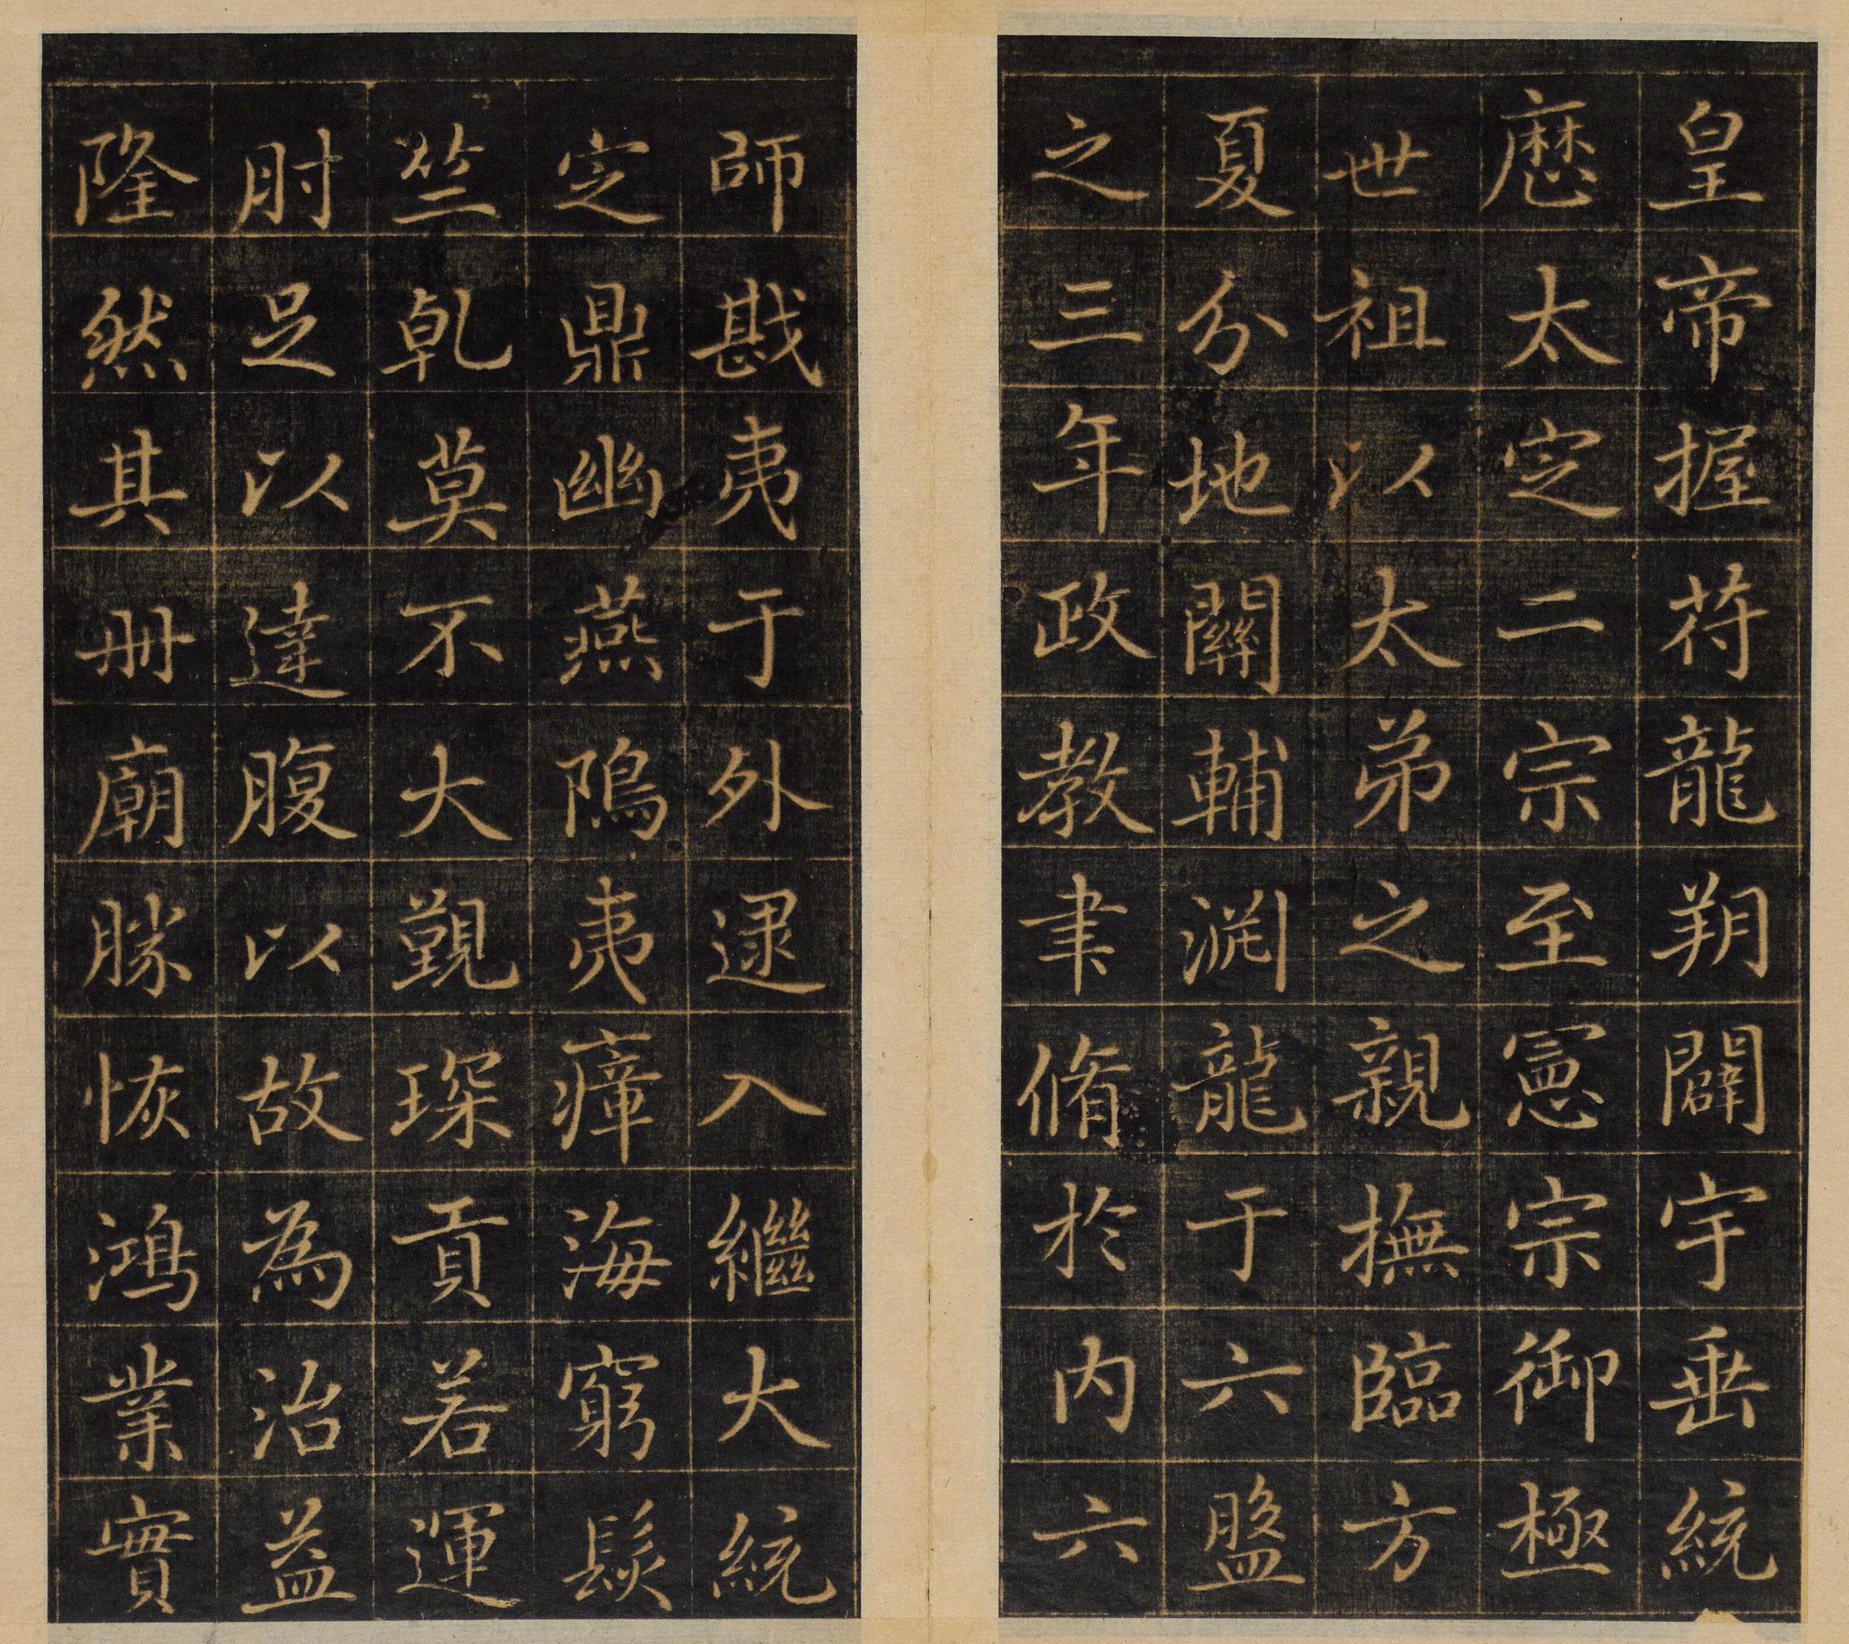 皇帝握符龍朔闢宇垂統
歴太定二宗至憲宗御極
世祖以太弟之親撫臨方
夏分地關輔淵龍于六盤
之三年政教聿脩於内六
師戡夷于外逮入繼大統
定鼎幽燕隝夷瘴海窮髮
竺乹莫不大覲琛貢若運
肘足以達腹以故為治益
隆然其册廟勝恢鴻業實